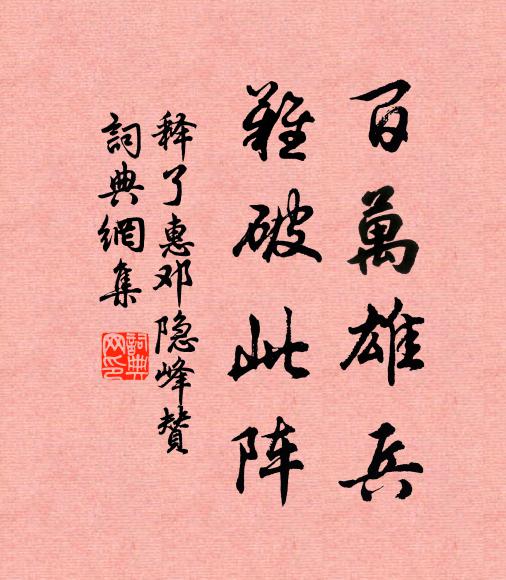 百萬雄兵
難破此阵
释了惠邓隐峰贊
詞典網集
詞典网印